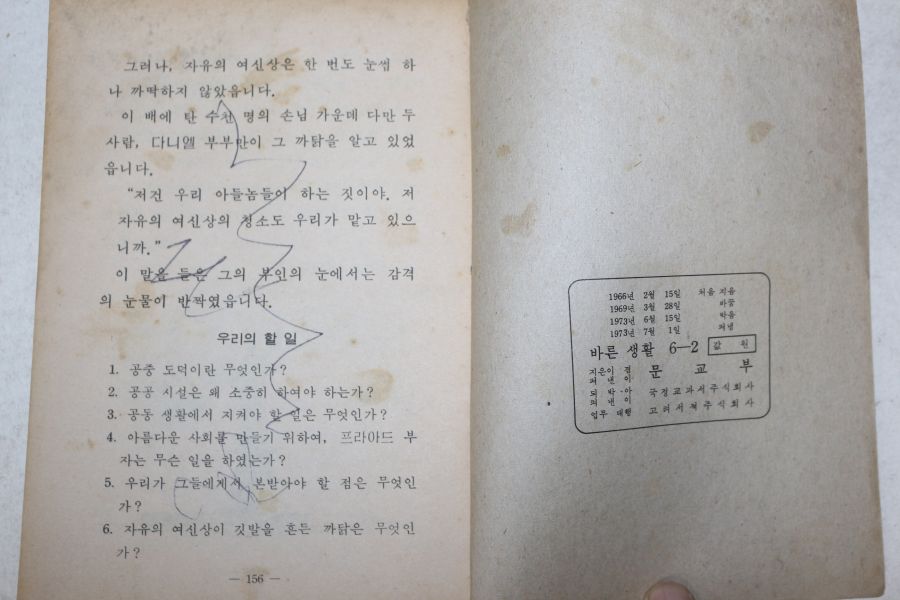 그러나, 자유의 여신상은 한 번도 눈썹 하
나 까딱하지 않았읍니다.
이 배에 탄 수천 명의 손님 가운데 다만 두
사람, 다니엘 부부만이 그 까닭을 알고 있었
읍니다.
“저건 우리 아들놈들이 하는 짓이야. 저
자유의 여신상의 청소도 우리가 맡고 있으
니까.”
이 말을 들은 그의 부인의 눈에서는 감격
의 눈물이 반짝였읍니다.
우리의 할 일
1. 공중 도덕이란 무엇인가?
2. 공공 시설은 왜 소중히 하여야 하는가?
3. 공동 생활에서 지켜야 할 일은 무엇인가?
4. 아름다운 사회를 만들기 위하여, 프라아드 부
자는 무슨 일을 하였는가?
5. 우리가 그들에게서 본받아야 할 점은 무엇인
가?
6. 자유의 여신상이 깃발을 흔든 까닭은 무엇인
가?
— 156 —
1966년 2월 15일 처음 지음
1969년 3월 28일 바꿈
1973년 6월 15일 박음
1973년 7월 1일 펴냄
바른 생활 6—2 값 원
지은이 겸
펴 낸 이 문 교 부
되 박 아
펴 낸 이 국정교과서주식회사
업무 대행 고려서적주식회사